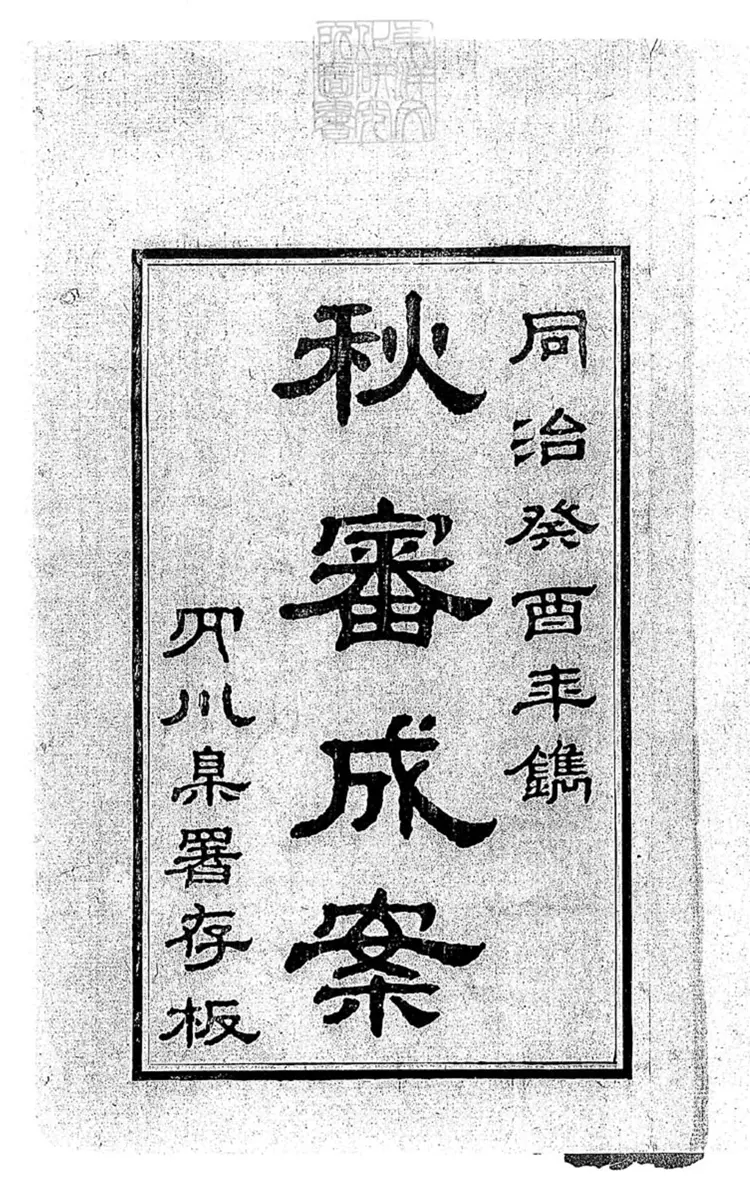 同治癸酉年鐫
秋審成案
四川臬署存板